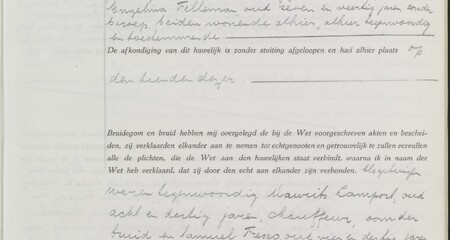 Engelina Telleman oud zeven en veertig jaren, zonder
beroep, beiden wonende alhier, alhier tegenwoordig
en toestemmende
De afkondiging van dit huwelijk is zonder stuiting afgeloopen en had alhier plaats op
den tienden dezer
Bruidegom en bruid hebben mij overgelegd de bij de Wet voorgeschreven akten en beschei-
den, zij verklaarden elkander aan te nemen tot echtgenooten en getrouwelijk te zullen vervullen
alle de plichten, die de Wet aan den huwelijken staat verbindt, waarna ik in naam der
Wet heb verklaard, dat zij door den echt aan elkander zijn verbonden. Als getuigen
waren tegenwoordig Maurits Lamport, oud
acht en dertig jaren, chauffeur, oom der
bruid en Samuel Fresco oud vier en dertig jaren